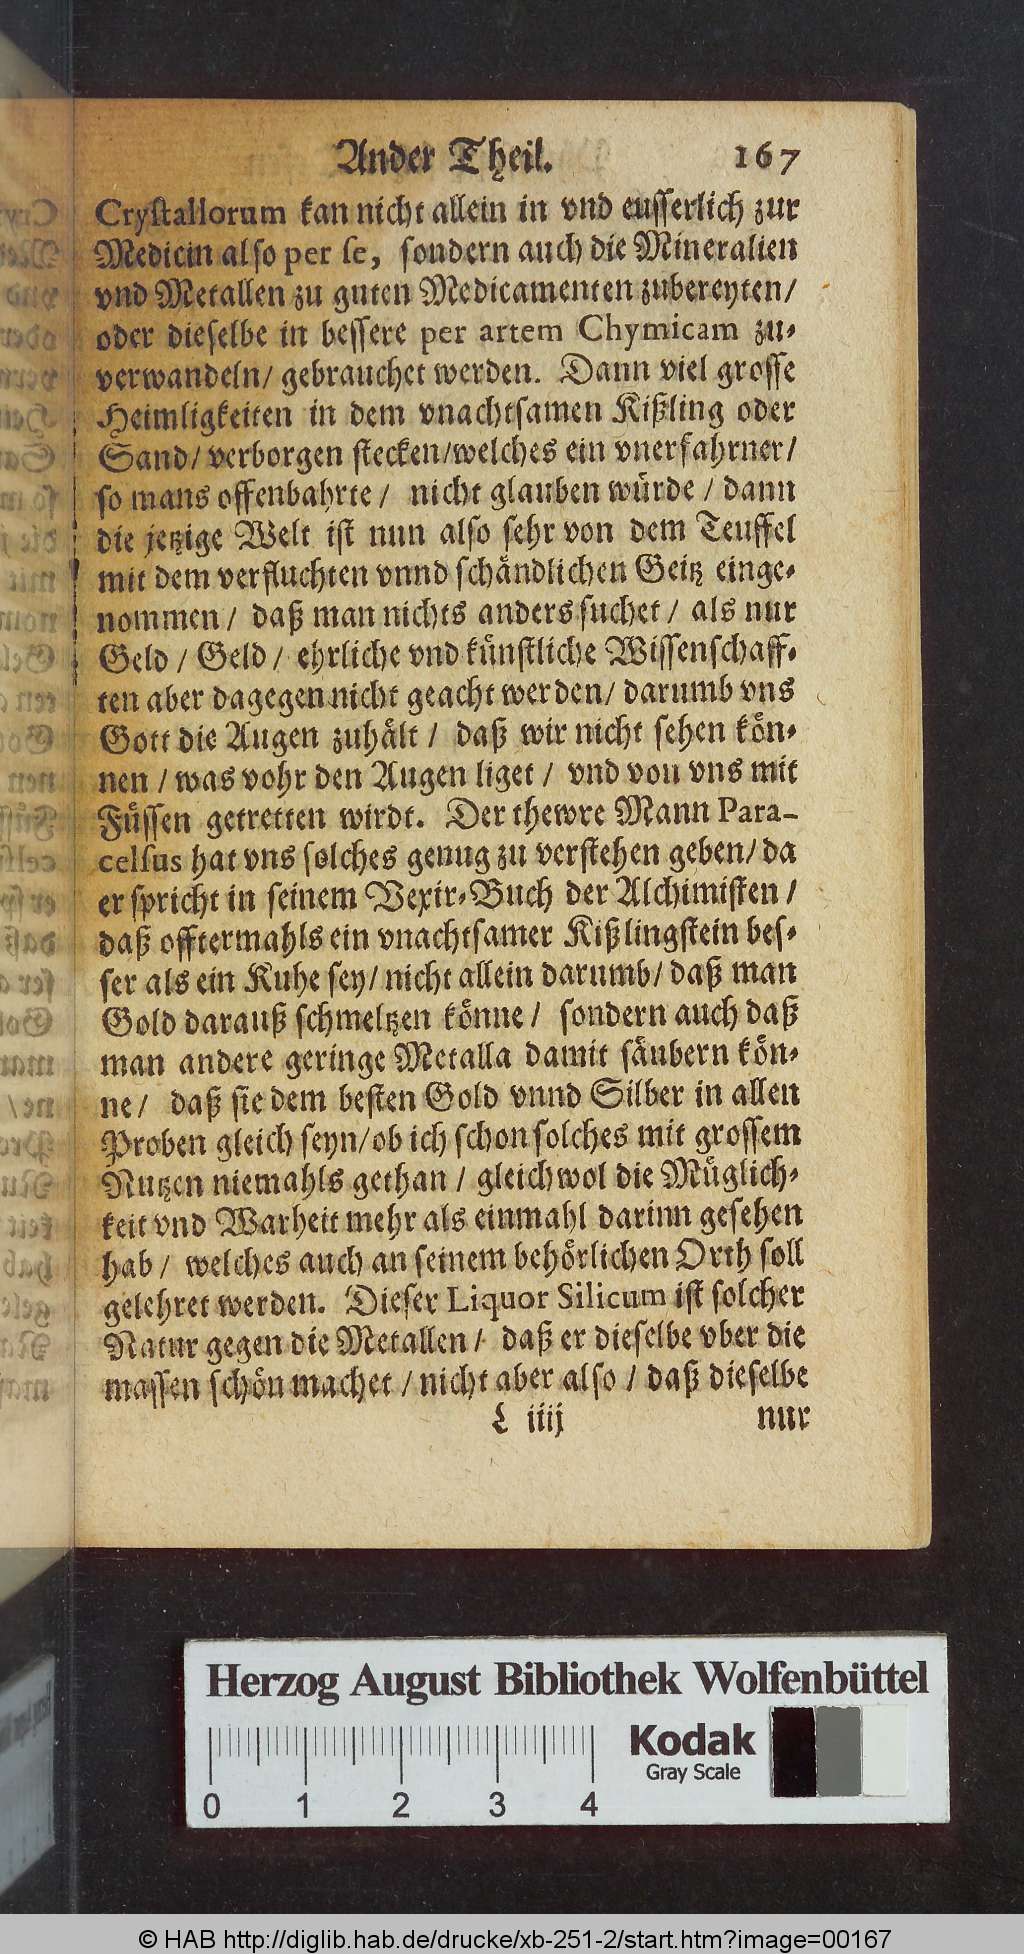 Ander Theil. 167
Crystallorum kan nicht allein in vnd eusserlich zur
Medicin also per se, sondern auch die Mineralien
vnd Metallen zu guten Medicamenten zubereyten/
oder dieselbe in bessere per artem Chymicam zu-
verwandeln/ gebrauchet werden. Dann viel grosse
Heimligkeiten in dem vnachtsamen Kißling oder
Sand/ verborgen stecken/welches ein vnerfahrner/
so mans offenbahrte/ nicht glauben würde/ dann
die jetzige Welt ist nun also sehr von dem Teuffel
mit dem verfluchten vnnd schändlichen Geitz einge-
nommen/ daß man nichts anders suchet/ als nur
Geld/ Geld/ ehrliche vnd künstliche Wissenschaff-
ten aber dagegen nicht geacht werden/ darumb vns
Gott die Augen zuhält/ daß wir nicht sehen kön-
nen/ was vohr den Augen liget/ vnd von vns mit
Füssen getretten wirdt. Der thewre Mann Para-
celsus hat vns solches genug zu verstehen geben/ da
er spricht in seinem Vexir-Buch der Alchimisten/
daß offtermahls ein vnachtsamer Kißlingstein bes-
ser als ein Kuhe sey/ nicht allein darumb/ daß man
Gold darauß schmeltzen könne/ sondern auch daß
man andere geringe Metalla damit säubern kön-
ne/ daß sie dem besten Gold vnnd Silber in allen
Proben gleich seyn/ ob ich schon solches mit grossem
Nutzen niemahls gethan/ gleichwol die Müglich-
keit vnd Warheit mehr als einmahl darinn gesehen
hab/ welches auch an seinem behörlichen Orth soll
gelehret werden. Dieser Liquor Silicum ist solcher
Natur gegen die Metallen/ daß er dieselbe vber die
massen schön machet/ nicht aber also/ daß dieselbe
L iiij nur
Herzog August Bibliothek Wolfenbüttel
Kodak
Gray Scale
0 1 2 3 4
© HAB http://diglib.hab.de/drucke/xb-251-2/start.htm?image=00167